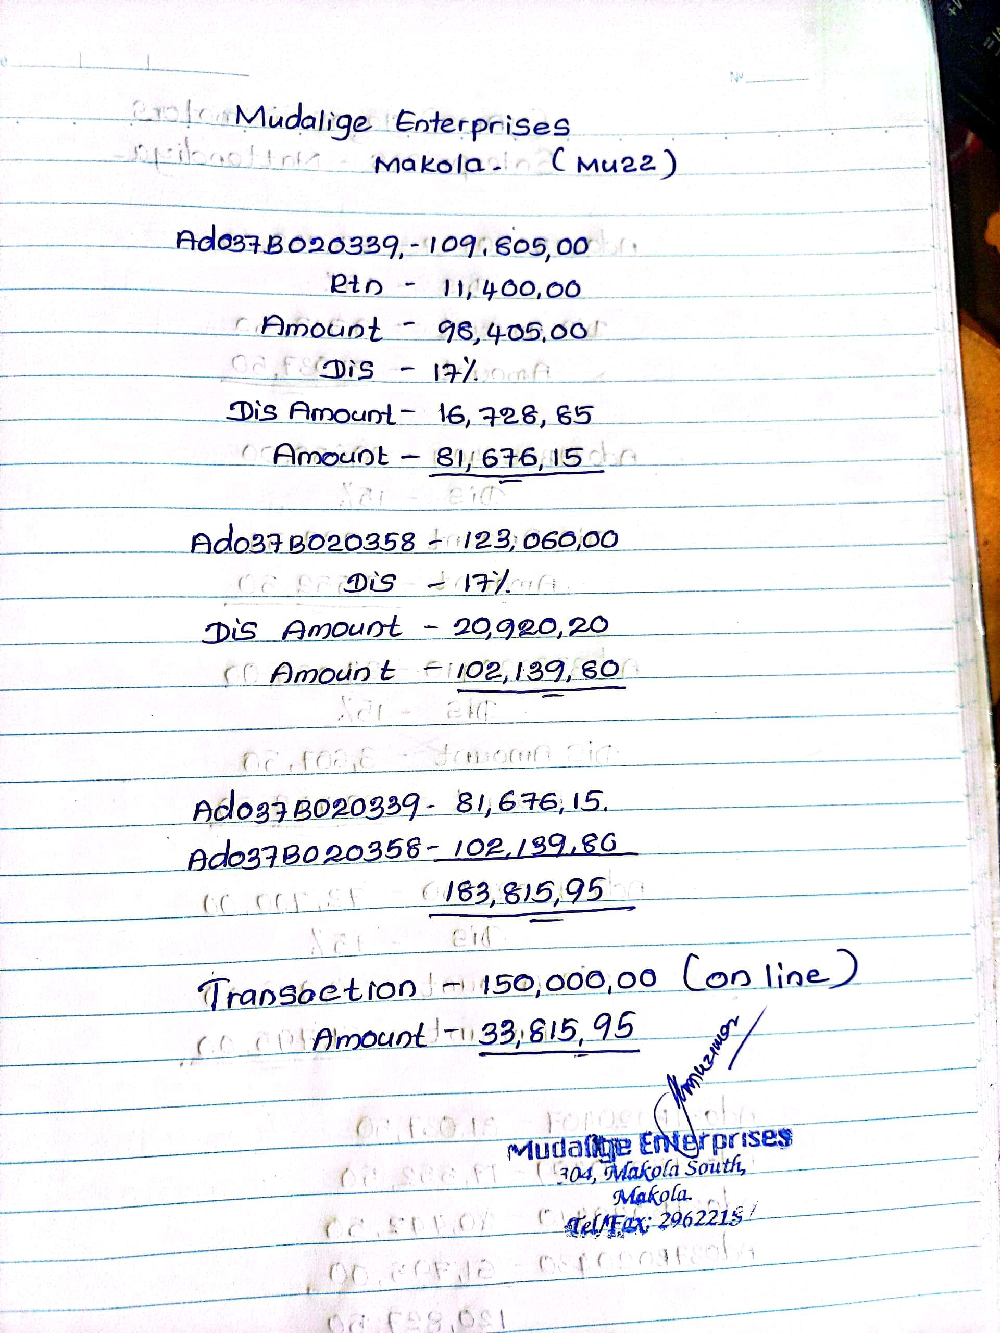 Mudalige Enterprises
Makola. (Mu22)
Ado37B020339,-109,805,00
Rtn - 11,400,00
Amount - 98,405,00
Dis - 17%
Dis Amount - 16,728,85
Amount - 81,676,15
Ado37B020358 - 123,060,00
Dis - 17%
Dis Amount - 20,920,20
Amount - 102,139,80
Ado37B020339 - 81,676,15.
Ado37B020358 - 102,139,80
183,815,95
Transaction - 150,000,00 (on line)
Amount - 33,815,95
Mudalige Enterprises
304, Makola South,
Makola.
Tel/Fax: 2962215